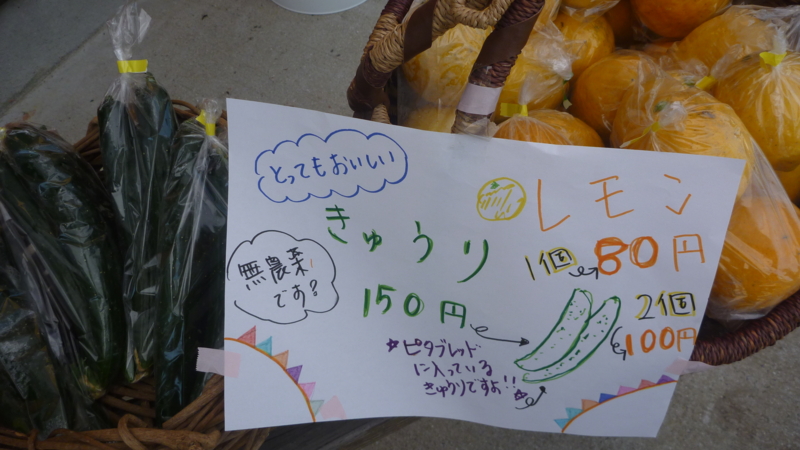 とってもおいしい
きゅうり
無農薬
です?
150円
レモン
1個 80円
2個
100円
ピタブレッド
に入っている
きゅうりですよ!!